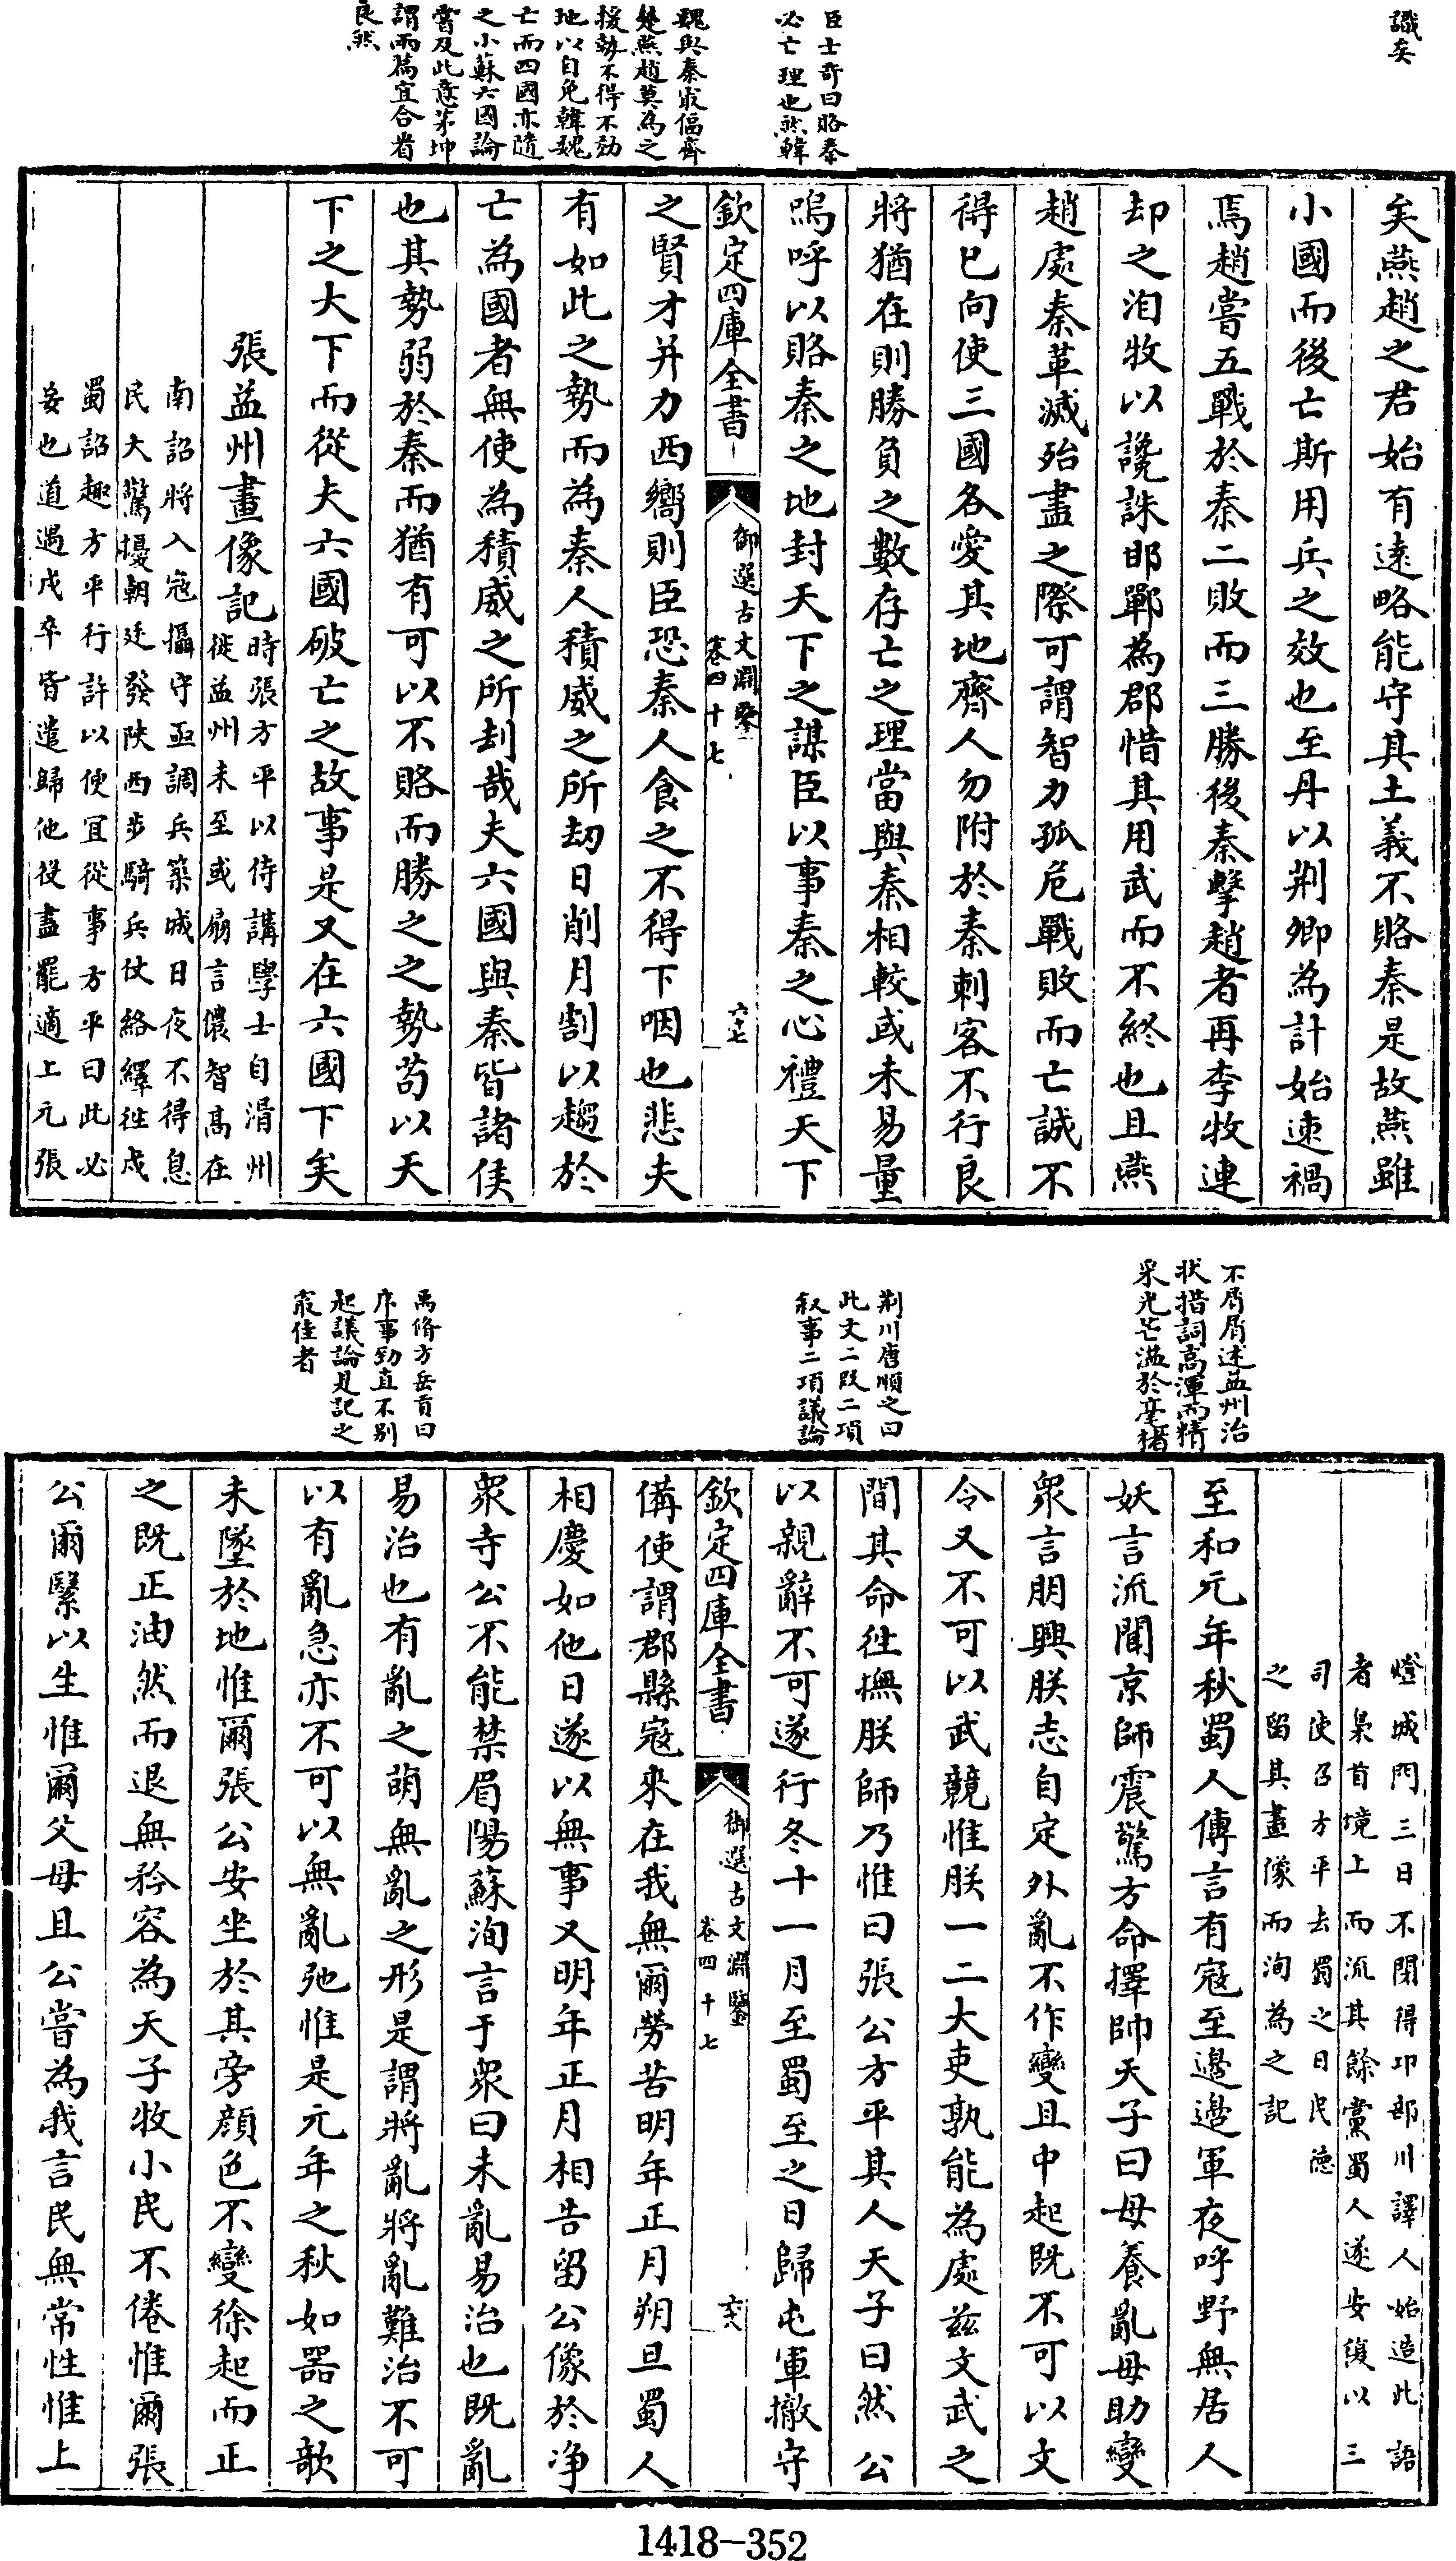 識矣
臣士奇曰賂秦
必亡理也然韓
魏與秦冣偪齊
楚燕趙莫為之
援勢不得不効
地以自免韓魏
亡而四國亦隨
之小蘇六國論
嘗及此意茅坤
謂兩篇宜合看
良然
矣燕趙之君始有遠略能守其土義不賂秦是故燕雖
小國而後亡斯用兵之效也至丹以荆卿為計始速禍
焉趙嘗五戰於秦二敗而三勝後秦擊趙者再李牧連
却之洎牧以讒誅邯鄲為郡惜其用武而不終也且燕
趙處秦革滅殆盡之際可謂智力孤危戰敗而亡誠不
得已向使三國各愛其地齊人勿附於秦刺客不行良
將猶在則勝負之數存亡之理當與秦相較或未易量
嗚呼以賂秦之地封天下之謀臣以事秦之心禮天下
欽定四庫全書
御選古文淵鑒
卷四十七
六十七
之賢才并力西嚮則臣恐秦人食之不得下咽也悲夫
有如此之勢而為秦人積威之所刧日削月割以趨於
亡為國者無使為積威之所刧哉夫六國與秦皆諸侯
也其勢弱於秦而猶有可以不賂而勝之之勢苟以天
下之大下而從夫六國破亡之故事是又在六國下矣
張益州畫像記
時張方平以侍講學士自滑州
徙益州未至或扇言儂智高在
南詔將入冦攝守亟調兵築城日夜不得息
民大驚擾朝廷發陜西步騎兵仗絡繹徃戍
蜀詔趣方平行許以便冝從事方平曰此必
妄也道遇戍卒皆遣歸他役盡罷適上元張
不屑屑述益州治
状措詞高渾而精
采光芒溢於毫楮
荆川唐順之曰
此文二段二項
叙事二項議論
禹脩方岳貢曰
序事勁直不别
起議論是記之
冣佳者
燈城門三日不閉得卭部川譯人始造此語
者梟首境上而流其餘黨蜀人遂安復以三
司使召方平去蜀之日民德
之留其畫像而洵為之記
至和元年秋蜀人傳言有冦至邊邊軍夜呼野無居人
妖言流聞京師震驚方命擇帥天子曰毋養亂毋助變
衆言朋興朕志自定外亂不作變且中起既不可以文
令又不可以武競惟朕一二大吏孰能為處兹文武之
間其命徃撫朕師乃惟曰張公方平其人天子曰然公
以親辭不可遂行冬十一月至蜀至之日歸屯軍撤守
欽定四庫全書
御選古文淵鑒
卷四十七
六十八
備使謂郡縣冦來在我無爾勞苦明年正月朔旦蜀人
相慶如他日遂以無事又明年正月相告留公像於净
衆寺公不能禁眉陽蘇洵言于衆曰未亂易治也既亂
易治也有亂之萌無亂之形是謂將亂將亂難治不可
以有亂急亦不可以無亂弛惟是元年之秋如器之欹
未墜於地惟爾張公安坐於其旁顔色不變徐起而正
之既正油然而退無矜容為天子牧小民不倦惟爾張
公爾繄以生惟爾父母且公嘗為我言民無常性惟上
1418-352